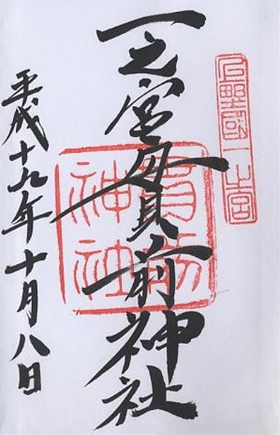 上野國一之宮
一之宮貫前神社
貫前神社
平成十九年十月八日